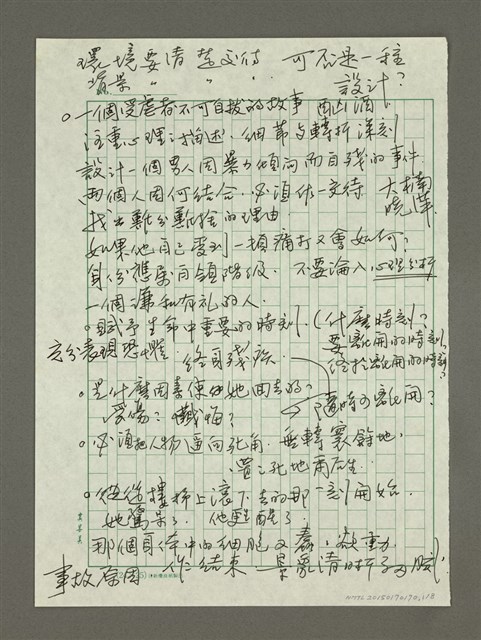 環境要清楚交待 可否是一種
背景 〃 〃 設計?
○一個受虐者不可自拔的故事 酗酒
注重心理的描述,細節与轉折深刻
設計一個男人因暴力傾向而自殘的事件
兩個人因何結合,必須作一交待 大樺
找出難分難捨的理由. 曉華
如果他自己受到一頓痛打又會如何?
身份應屬白領階級. 不要淪入心理分析
一個謙和有礼的人.
○賦予生命中重要的時刻.(什麼時刻?
要離開的時刻
充分表現恐懼. 終身殘疾 終於離開的時刻?
○是什麼因素使她回去的? 隨時可離開?
受傷? 懺悔?
○必須把人物逼向死角.無轉寰餘地,
置之死地而后生.
○從從樓梯上滾下去的那一刻開始.
她驚呆了. 他酒醒了
那個身体中的細胞又蠢蠢欲動
事故原因 作結束
NMTL20150170170,118